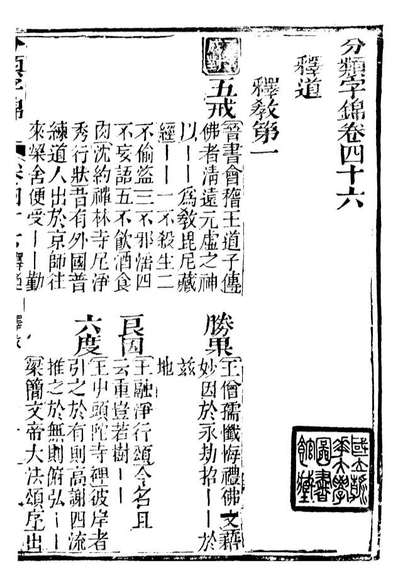 分類字錦卷四十六
釋道
釋敎第一
五戒
晉書會稽王道子傳
佛者清遠元虛之神
以——為敎毘尼藏
經——一不殺生二
不偷盜三不邪婬四
不妄語五不飲酒食
肉沈約禪林寺尼淨
秀行狀昔有外國普
練道人出於京師往
來梁舍便受——勤
勝果
王僧孺懺悔禮佛文藉
妙因於永劫招——於
茲
地
良因
王融淨行頌令名且
云重豈若樹——
六度
王屮頭陀寺碑彼岸者
引之於有則高謝四流
推之於無則俯弘——
梁簡文帝大法頌序出
分類字錦
卷四十六 釋道 釋敎
國立
大學
圖書
館藏